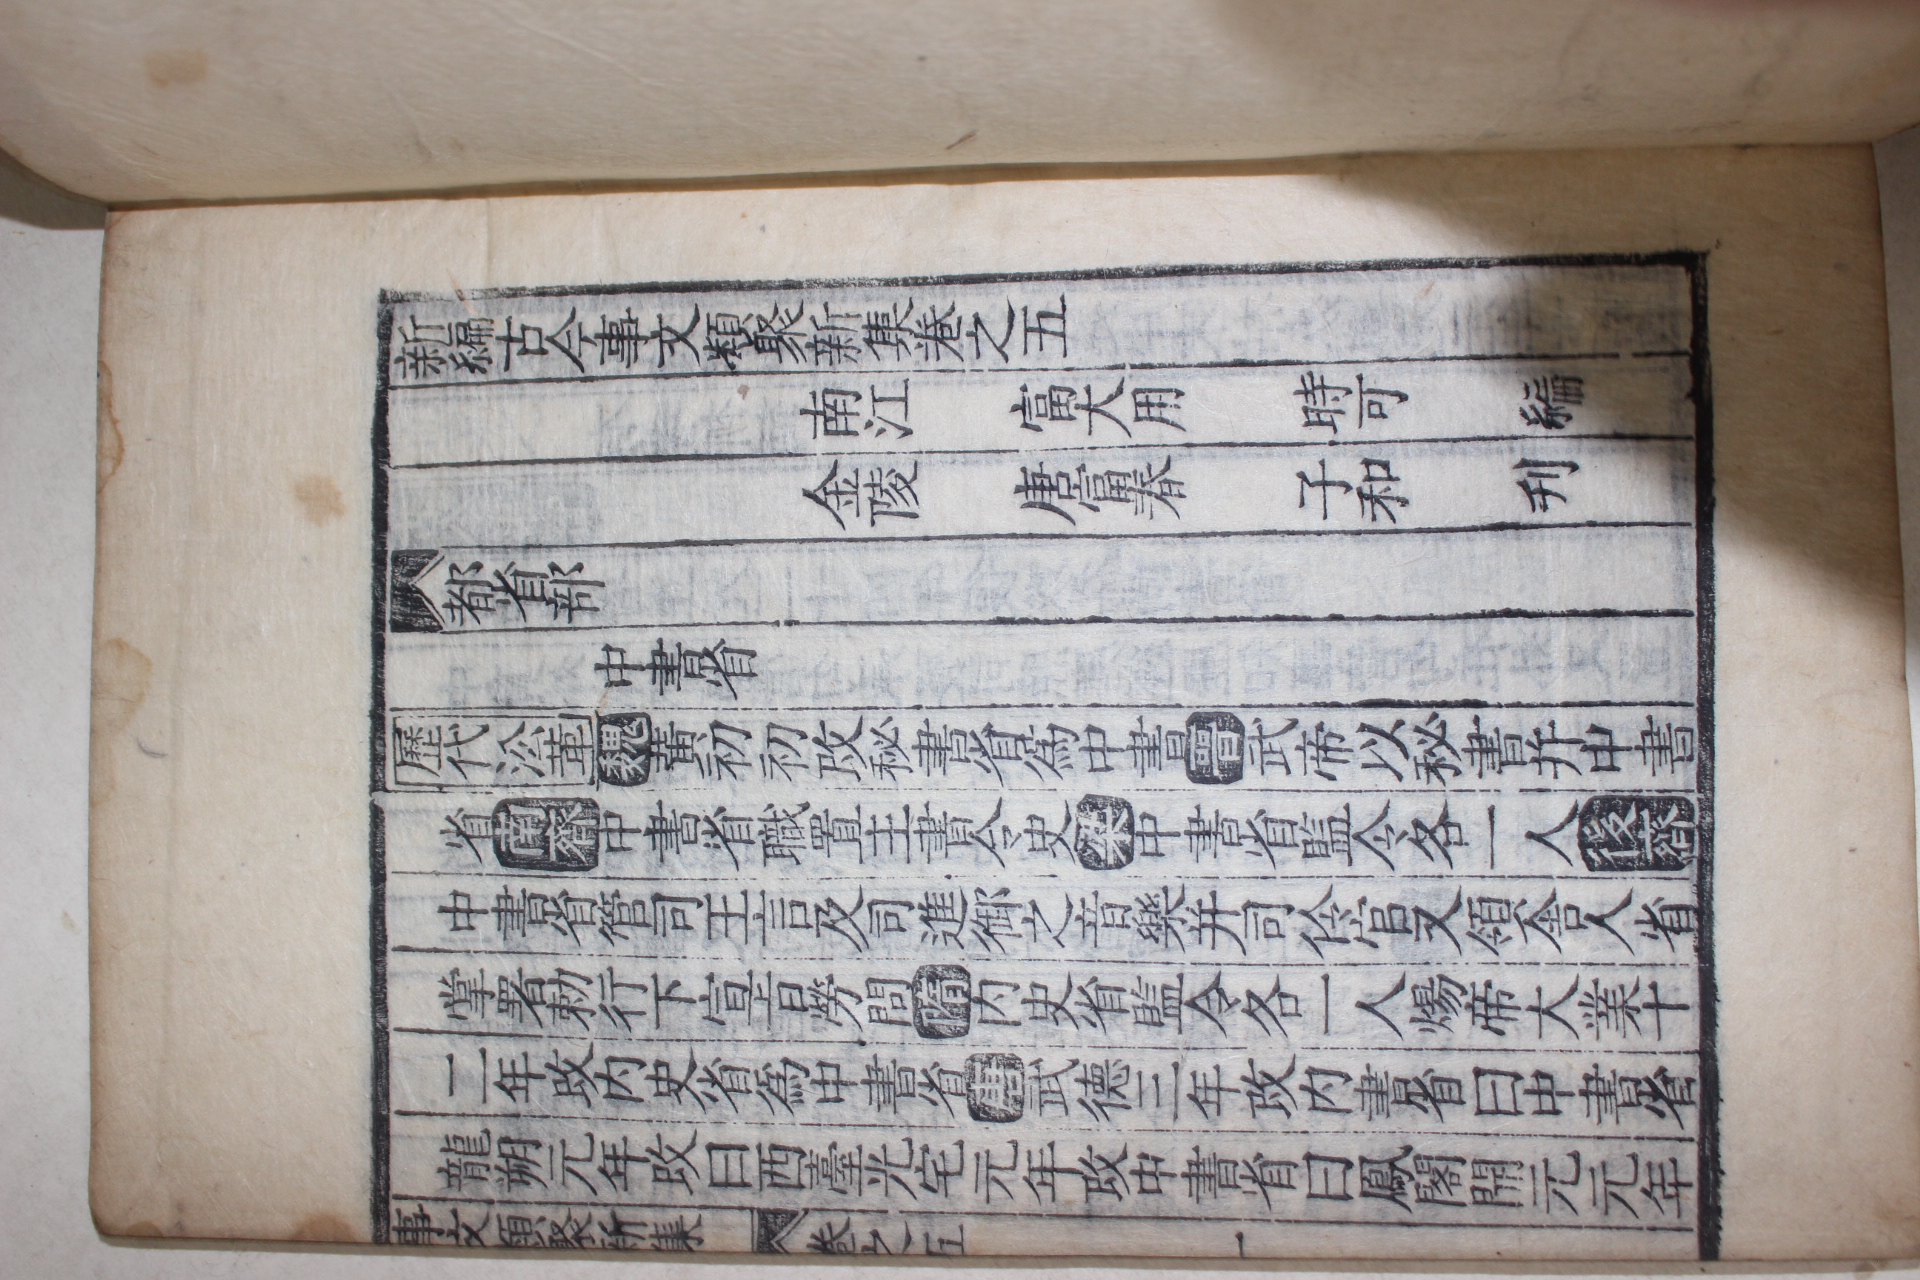 新編古今事文類聚新集卷之五
南江 富大用 時可 編
金陵 唐富春 子和 刋
都省部
中書省
歷代㳂革魏黃初初改秘書省爲中書晋武帝以秘書并中書
省南齊中書省職置主書令史梁中書省監令各一人後齊
中書省管司王言及司進御之音樂并司伶官又領舎人省
掌署勑行下宣旨勞問隋内史省監令各一人煬帝大業十
二年改内史省爲中書省唐武德三年改内書省曰中書省
龍朔元年改曰西臺光宅元年改中書省曰鳳閣開元元年
事文類聚新集 卷之五 一